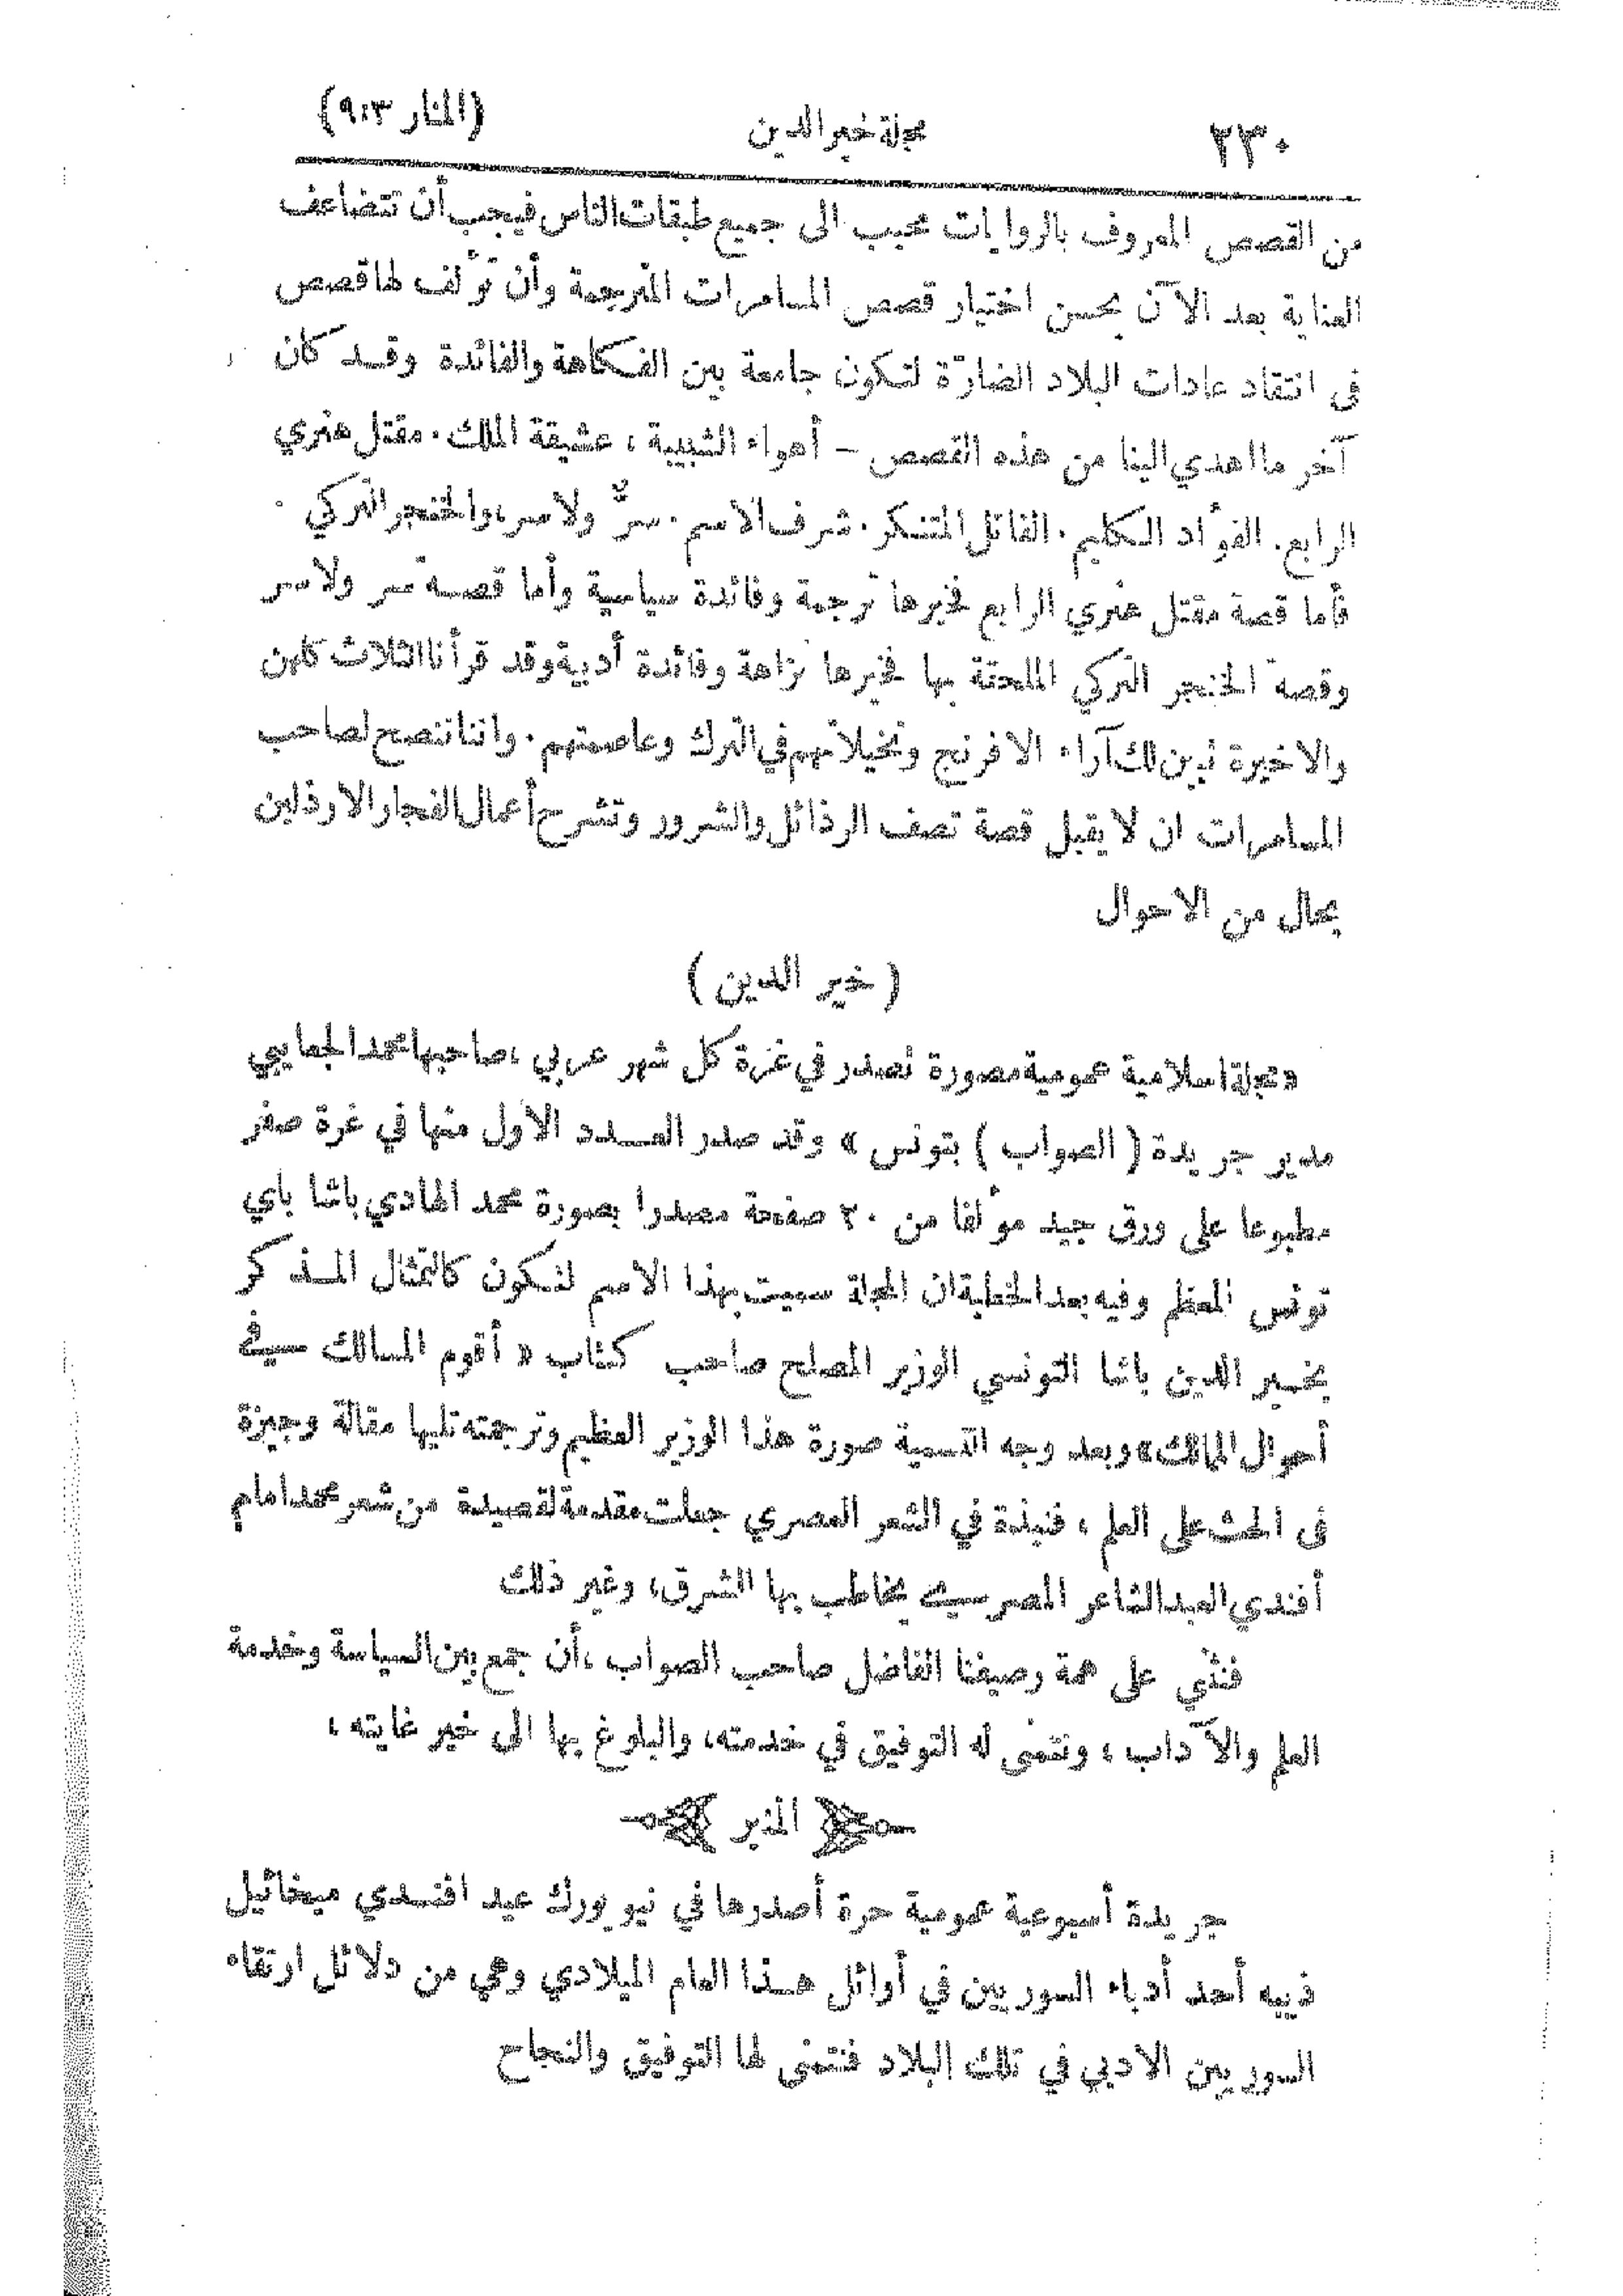 ٢٣٠ مجلة خير الدين (المنار ٩:٣)
من القصص المعروف بالروايات محبب الى جميع طبقات الناس فيجب أن تتضاعف
العناية بعد الآن بحسن اختيار قصص المسامرات المترجمة وأن تؤلف لها قصص
فى انتقاد عادات البلاد الضارّة لتكون جامعة بين الفكاهة والفائدة وقد كان
آخر ما اهدي الينا من هذه القصص – أهواء الشبيبة ، عشيقة الملك . مقتل هنري
الرابع . الفؤاد الكليم . القاتل المتنكر . شرف الاسم . سرٌّ ولا سر ، والخنجر التركي .
فأما قصة مقتل هنري الرابع فخيرها ترجمة وفائدة سياسية وأما قصة سر ولا سر
وقصة الخنجر التركي الملحقة بها فخيرها نزاهة وفائدة أدبية وقد قرأنا الثلاث كلهن
والاخيرة تبين لك آراء الافرنج وتخيلاتهم في الترك وعاصمتهم . واننا ننصح لصاحب
المسامرات ان لا يقبل قصة تصف الرذائل والشرور وتشرح أعمال الفجار الارذلين
بحال من الاحوال
( خير الدين )
« مجلة اسلامية عمومية مصورة تصدر في غرة كل شهر عربي ، صاحبها محمد الجعايبي
مدير جريدة ( الصواب ) بتونس » وقد صدر العدد الاول منها في غرة صفر
مطبوعا على ورق جيد مؤلفا من ٢٠ صفحة مصدرا بصورة محمد الهادي باشا باي
تونس المعظم وفيه بعد الخطبة ان المجلة سميت بهذا الاسم لتكون كالتمثال المذكر
بخير الدين باشا التونسي الوزير المصلح صاحب كتاب « أقوم المسالك في
أحوال الممالك » وبعد وجه التسمية صورة هذا الوزير العظيم وترجمته تليها مقالة وجيزة
فى الحث على العلم ، فنبذة في الشعر العصري جعلت مقدمة لقصيدة من شعر محمد امام
أفندي العبد الشاعر المصري يخاطب بها الشرق ، وغير ذلك
فنثني على همة رصيفنا الفاضل صاحب الصواب ، أن جمع بين السياسة وخدمة
العلم والآداب ، ونتمنى له التوفيق في خدمته ، والبلوغ بها الى خير غايته ،
المنبر
جريدة أسبوعية عمومية حرة أصدرها في نيويورك عيد افندي ميخائيل
نبيه أحد أدباء السوريين في أوائل هذا العام الميلادي وهي من دلائل ارتقاء
السوريين الادبي في تلك البلاد فنتمنى لها التوفيق والنجاح